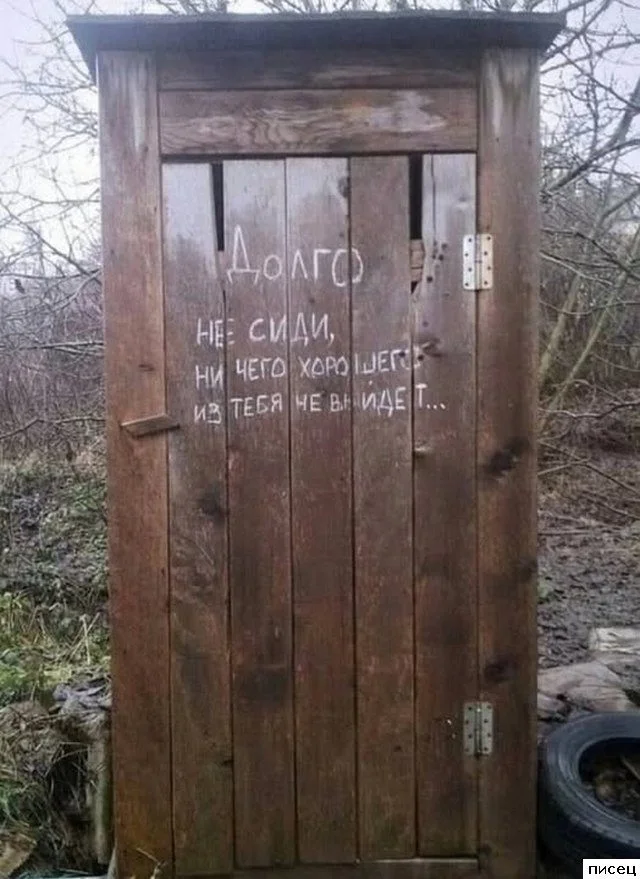 Долго
не сиди,
ни чего хорошего
из тебя не выйдет...
писец